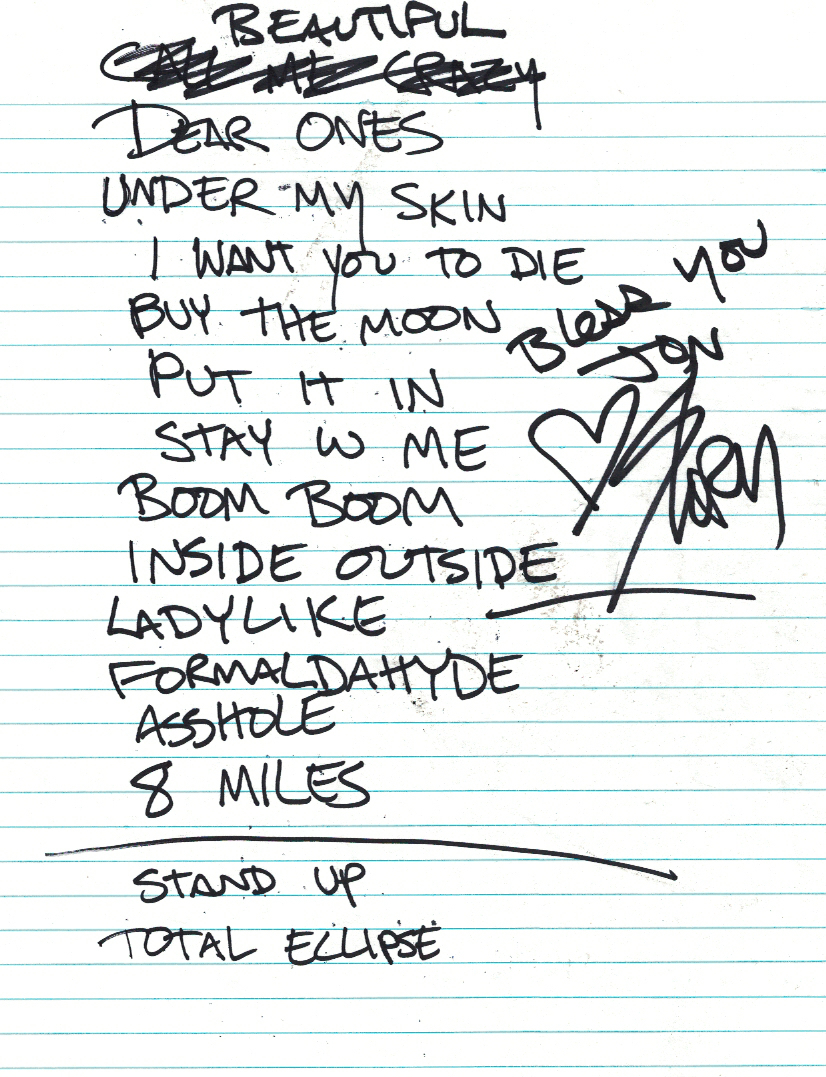 BEAUTIFUL
CALL ME CRAZY
DEAR ONES
UNDER MY SKIN
I WANT YOU TO DIE
BUY THE MOON
PUT IT IN
STAY W ME
BOOM BOOM
INSIDE OUTSIDE
LADYLIKE
FORMALDAHYDE
ASSHOLE
8 MILES
STAND UP
TOTAL ECLIPSE
Bless YOU
JON